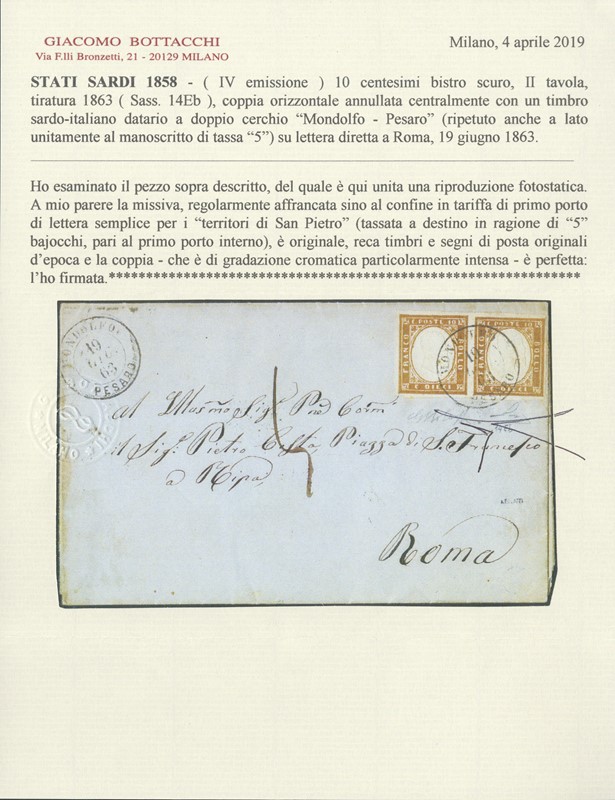 GIACOMO BOTTACCHI
Via F.lli Bronzetti, 21 - 20129 MILANO
Milano, 4 aprile 2019
STATI SARDI 1858 - ( IV emissione ) 10 centesimi bistro scuro, II tavola,
tiratura 1863 ( Sass. 14Eb ), coppia orizzontale annullata centralmente con un timbro
sardo-italiano datario a doppio cerchio “Mondolfo - Pesaro” (ripetuto anche a lato
unitamente al manoscritto di tassa “5”) su lettera diretta a Roma, 19 giugno 1863.
Ho esaminato il pezzo sopra descritto, del quale è qui unita una riproduzione fotostatica.
A mio parere la missiva, regolarmente affrancata sino al confine in tariffa di primo porto
di lettera semplice per i “territori di San Pietro” (tassata a destino in ragione di “5”
bajocchi, pari al primo porto interno), è originale, reca timbri e segni di posta originali
d’epoca e la coppia - che è di gradazione cromatica particolarmente intensa - è perfetta:
l’ho firmata.******************************************************************
MONDOLFO
19
63
PESARO
C. POSTE 10
FRANCO
BOLLO
C. DIECI
5
Al
il Sig. Pietro Piazza di S. Francesco
a Ripa
Roma